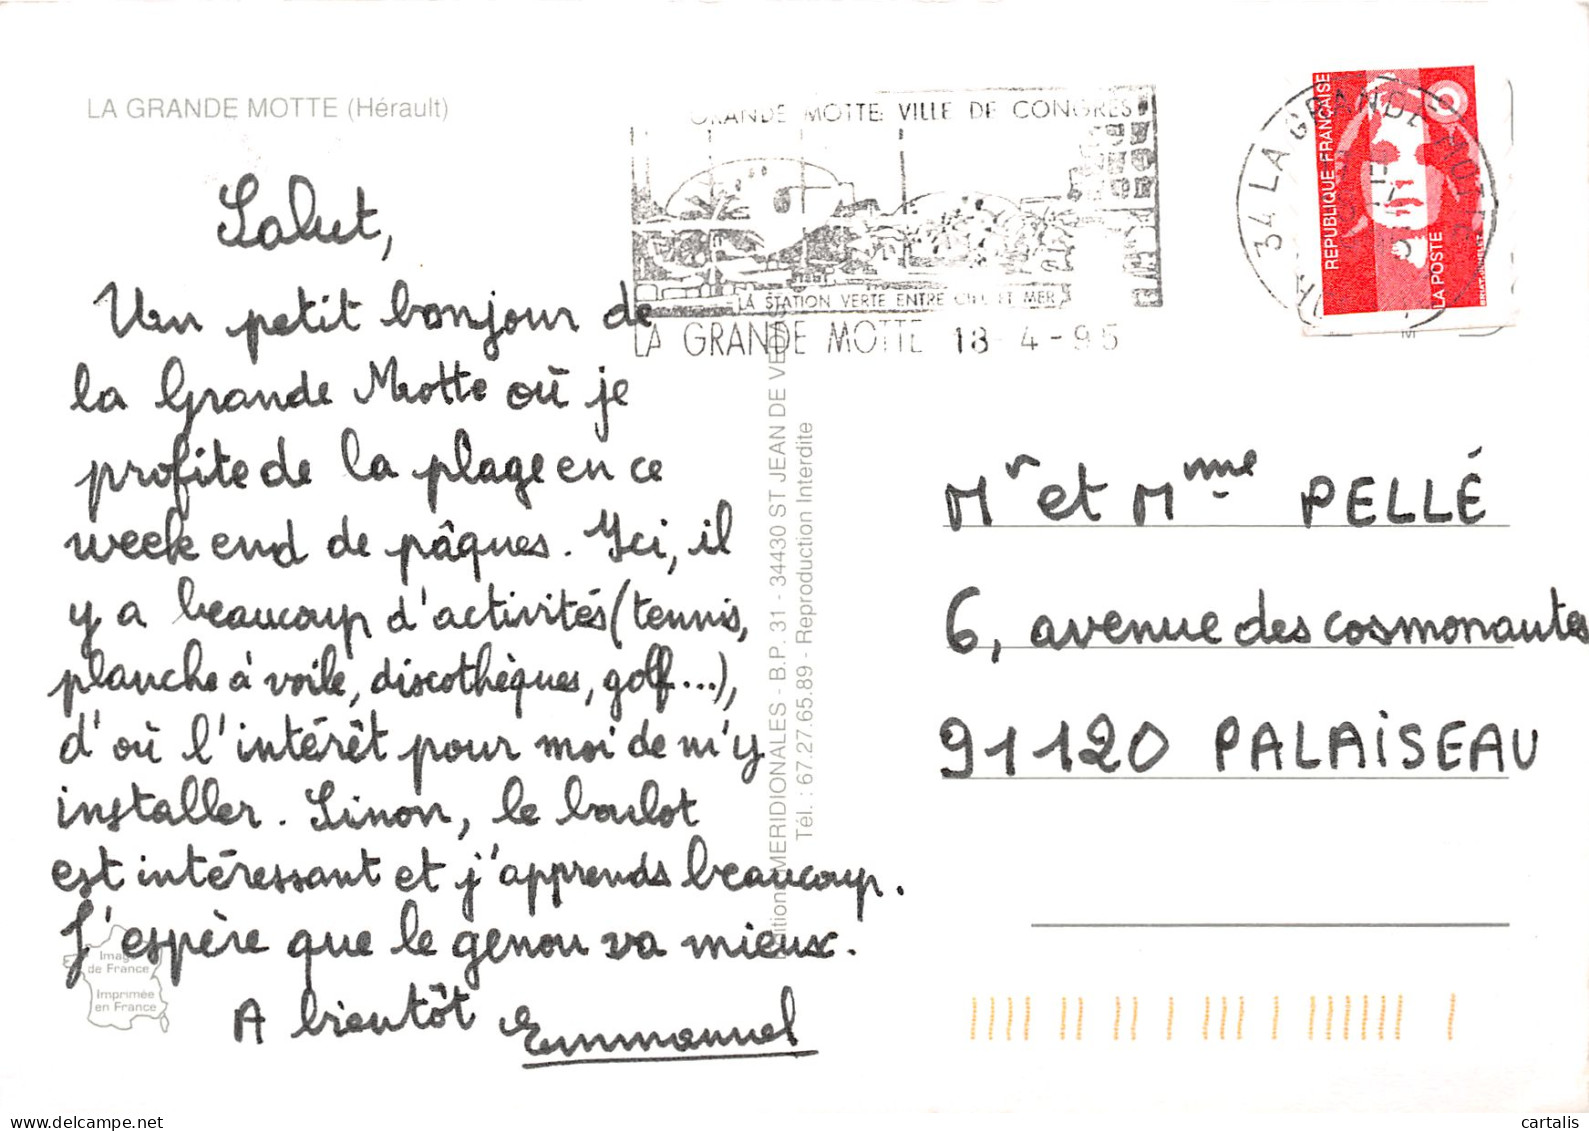 LA GRANDE MOTTE (Hérault)
Salut,
Un petit bonjour de
la Grande Motte où je
profite de la plage en ce
week end de pâques. Ici, il
y a beaucoup d'activités (tennis,
planche à voile, discothèques, golf...),
d'où l'intérêt pour moi de m'y
installer. Sinon, le boulot
est intéressant et j'apprends beaucoup.
J'espère que le genou va mieux.
A bientôt Emmanuel
Image
de France
Imprimée
en France
MERIDIONALES - B.P. 31 - 34430 ST JEAN DE VEDAS
Tél. : 67.27.65.89 - Reproduction Interdite
GRANDE MOTTE VILLE DE CONGRES
LA STATION VERTE ENTRE CIEL ET MER
LA GRANDE MOTTE 18-4-95
34 LA GRANDE MOTTE
REPUBLIQUE FRANÇAISE
LA POSTE
Mr et Mme PELLÉ
6, avenue des cosmonautes
91120 PALAiSEAU
cartalis